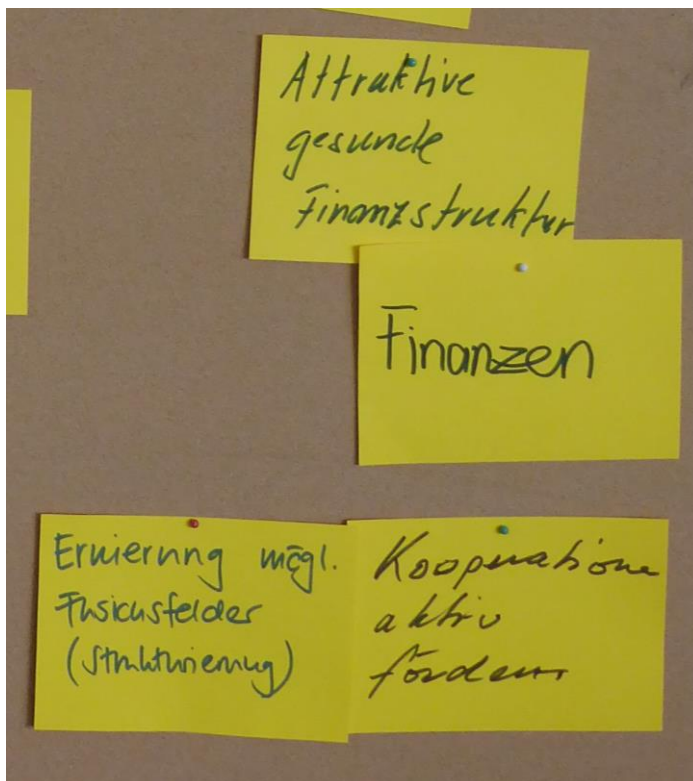 Attraktive
gesunde
Finanzstruktur
Finanzen
Eruierung mögl.
Fusionsfelder
(Strukturierung)
Kooperationen
aktiv
fördern